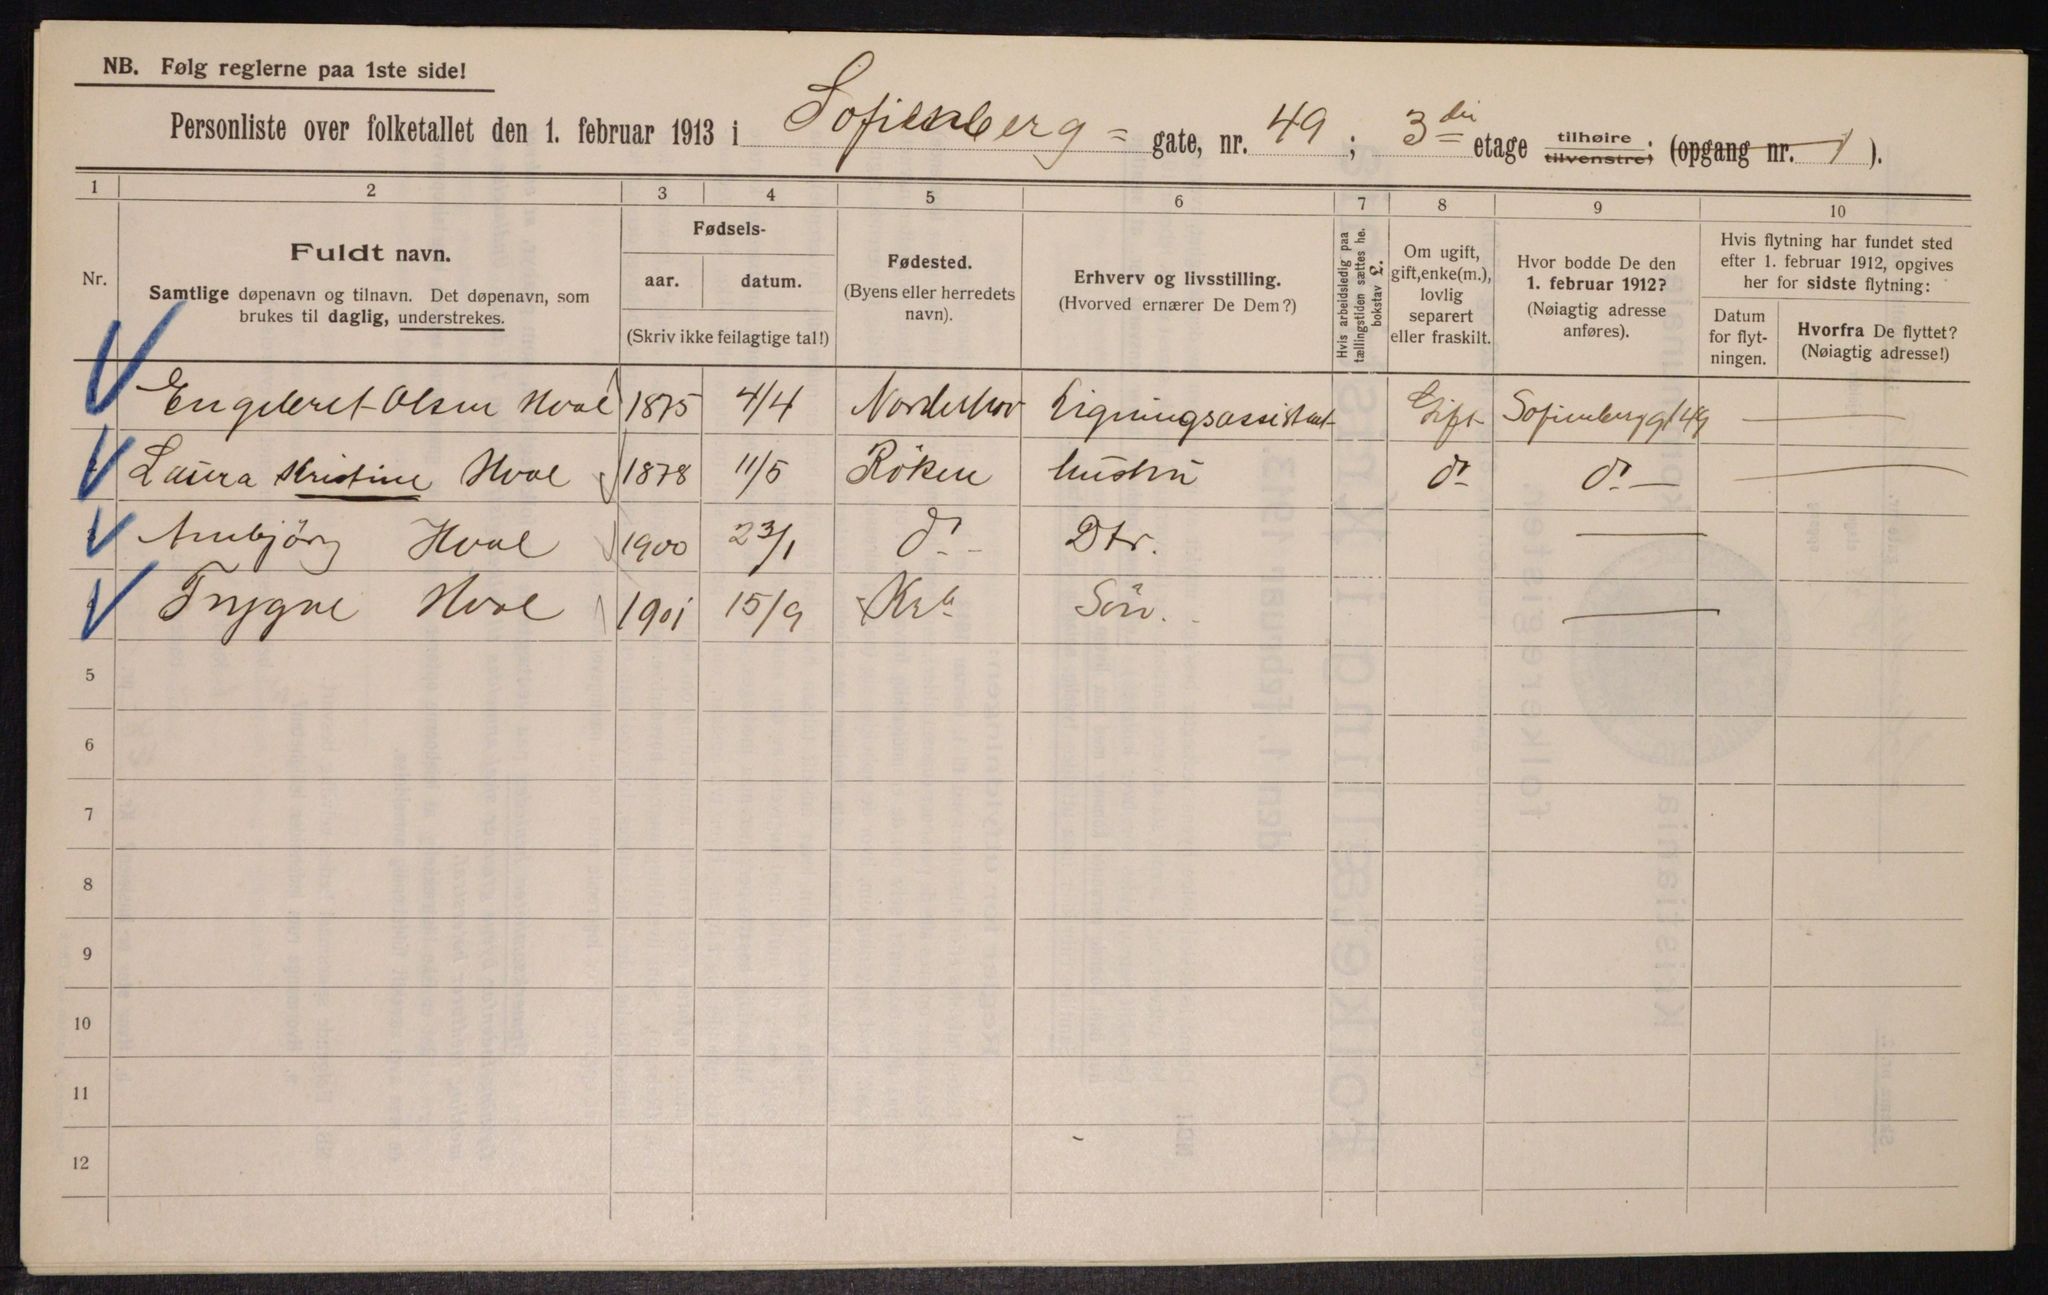 NB. Følg reglerne paa 1ste side!
Personliste over folketallet den 1. februar 1913 i Sofienberg= gate, nr. 49; 3die etage tilhøire tilvenstre; (opgang nr. 1).
1 2 3 4 5 6 7 8 9 10
Nr.
Fuldt navn.
Samtlige døpenavn og tilnavn. Det døpenavn, som
brukes til daglig, understrekes.
Fødsels-
aar. datum.
(Skriv ikke feilagtige tal!)
Fødested.
(Byens eller herredets
navn).
Erhverv og livsstilling.
(Hvorved ernærer De Dem?)
Hvis arbeidsledig paa
tællingstiden sættes her
bokstav L.
Om ugift,
gift, enke(m.),
lovlig
separert
eller fraskilt.
Hvor bodde De den
1. februar 1912?
(Nøiagtig adresse
anføres).
Hvis flytning har fundet sted
efter 1. februar 1912, opgives
her for sidste flytning:
Datum
for flyt-
ningen.
Hvorfra De flyttet?
(Nøiagtig adresse!)
Engebret Olsen Hval 1875 4/4 Norderhov Ligningsassistent Gift Sofienberggt 49 —
Laura Kristine Hval 1878 11/5 Röken hustru do do — —
Annbjörg Hval 1900 23/1 do - Dtr. —
Trygve Hval 1901 15/9 Kra Sön. —
5
6
7
8
9
10
11
12